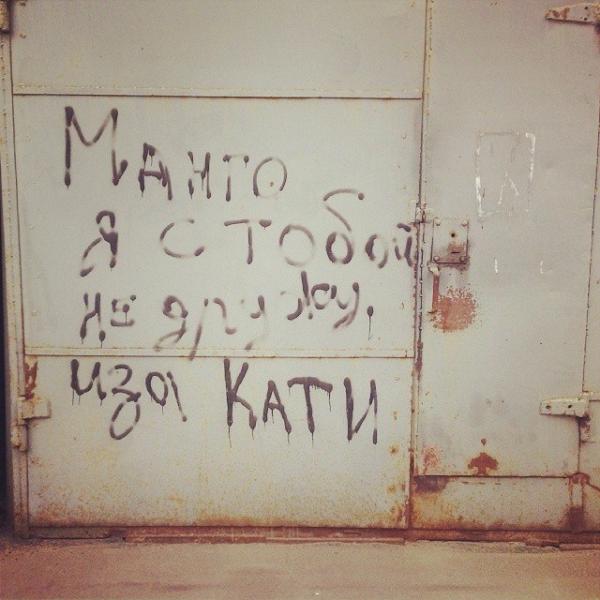 Манго
я с тобой
не дружу,
иза Кати